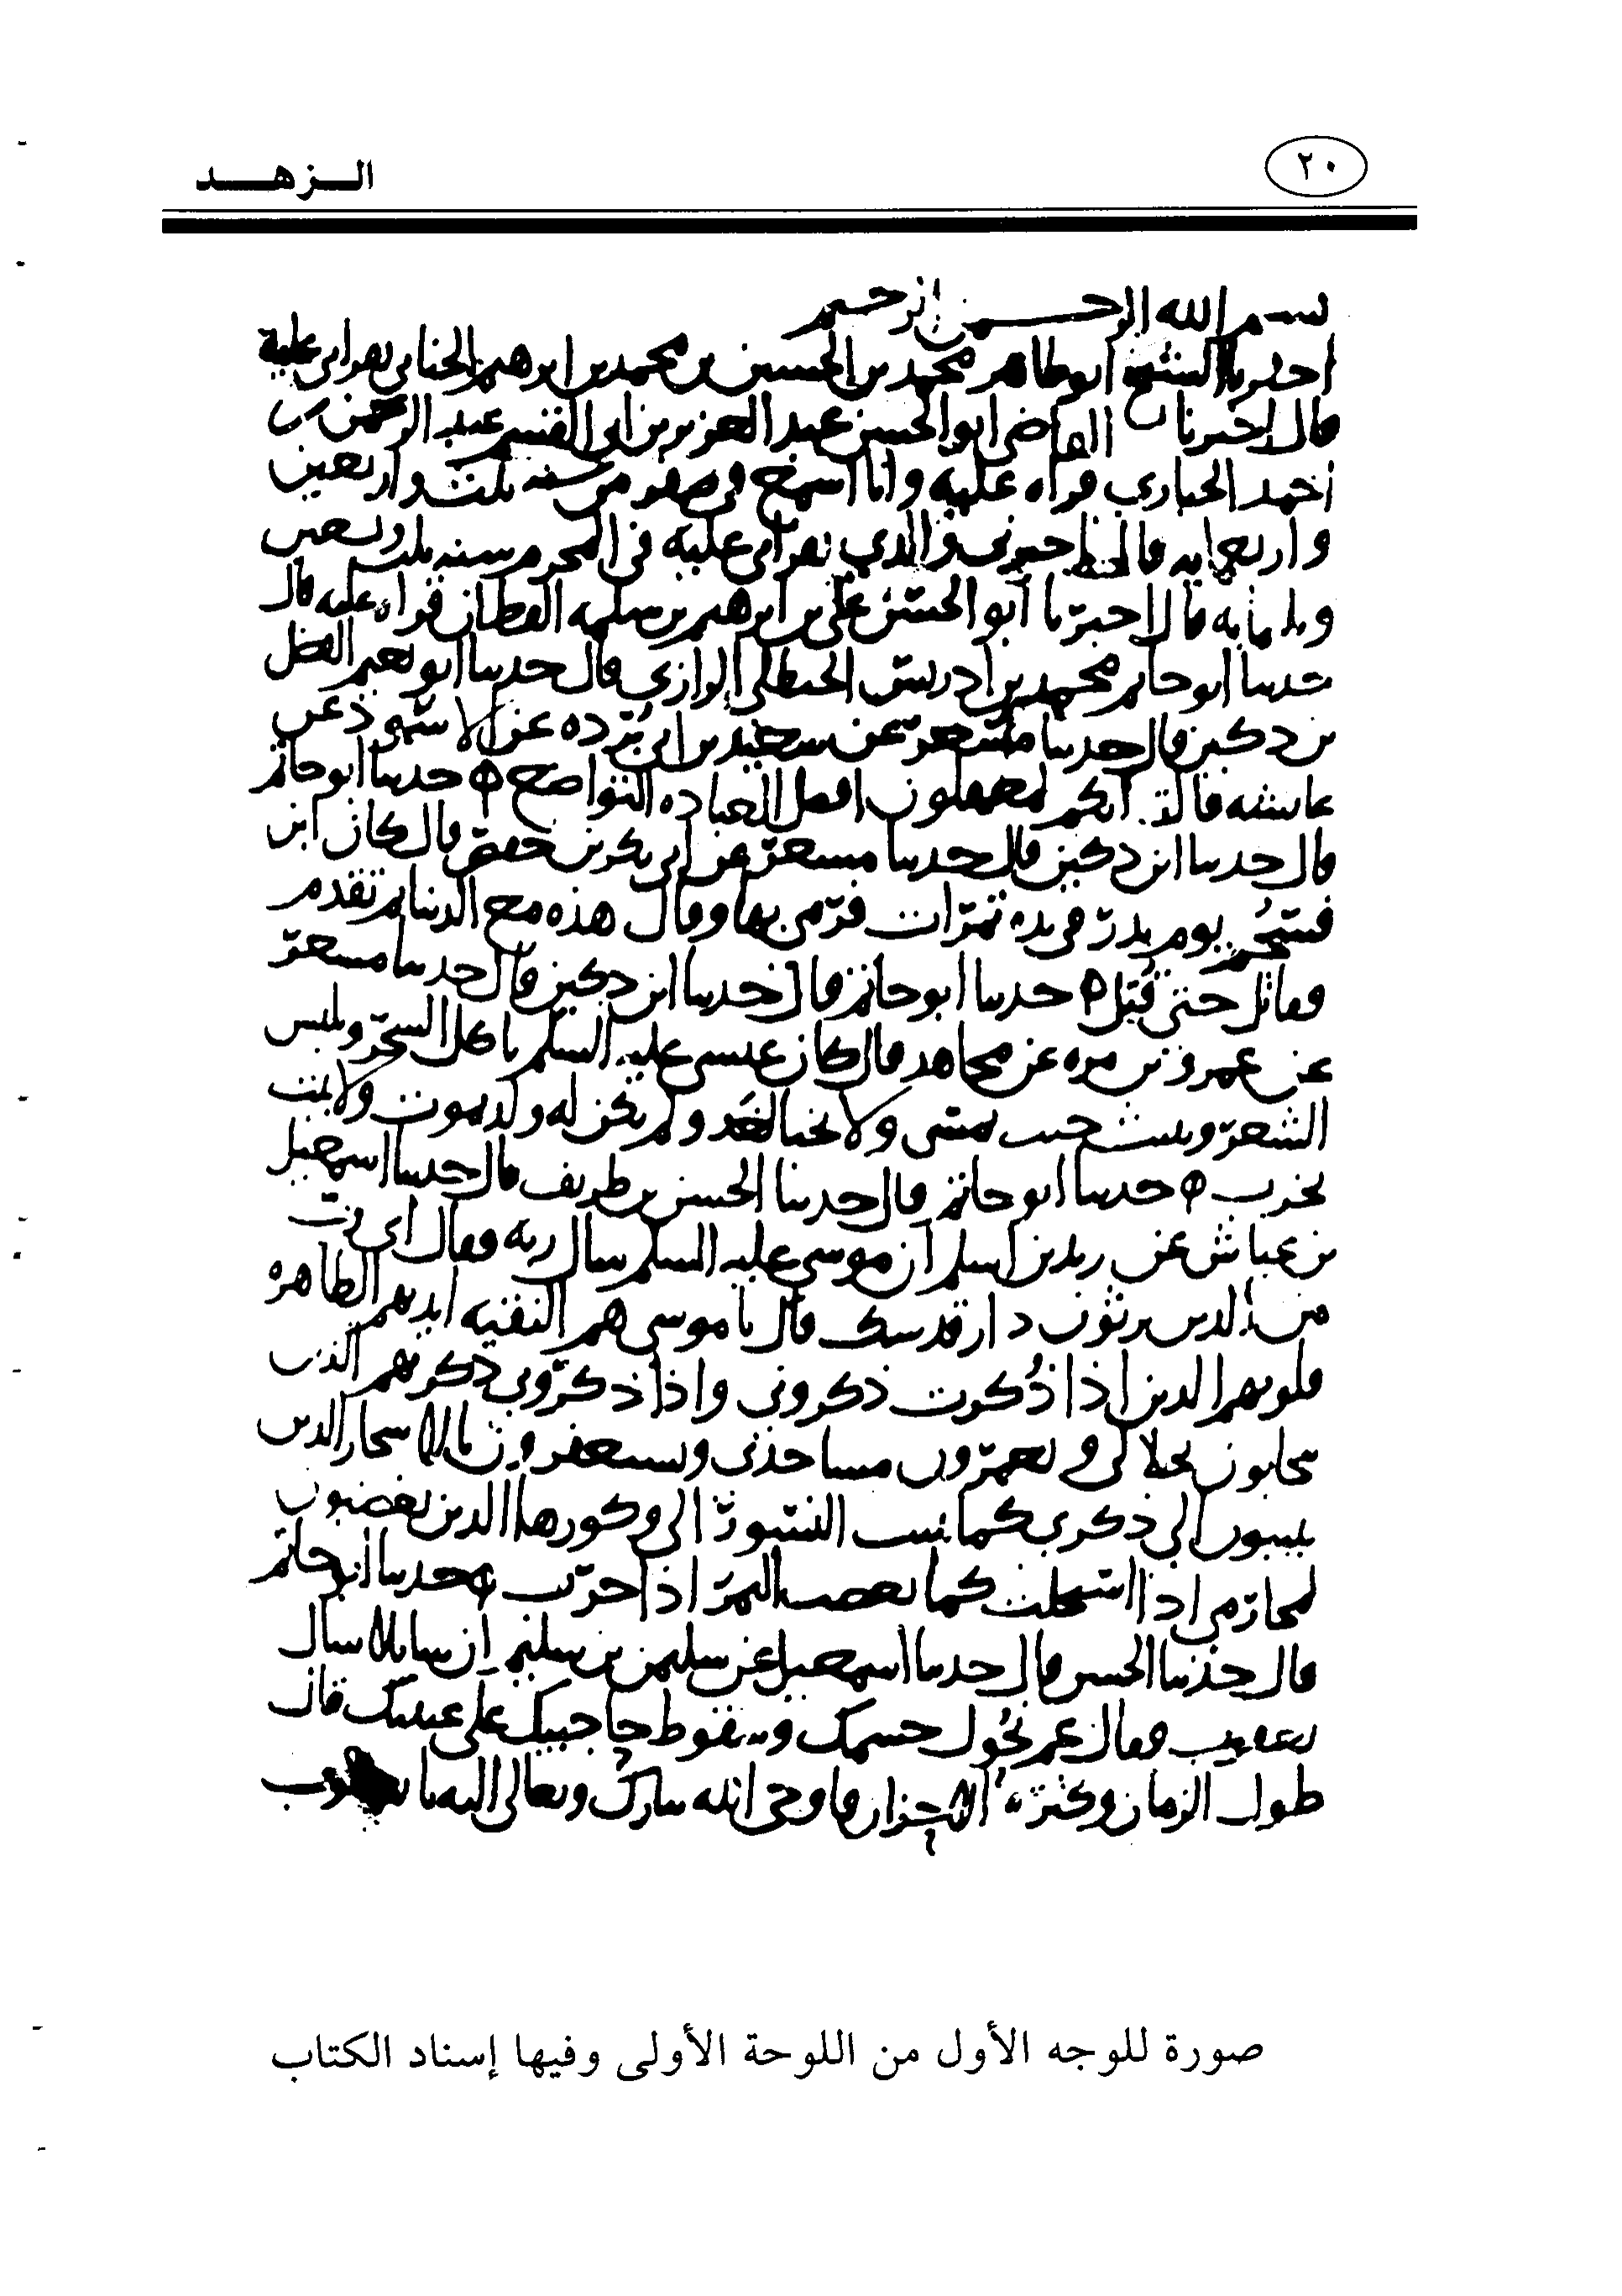 ٢٠
الزهد
بسم الله الرحمن الرحيم
اخبرنا الشيخ ابو طاهر محمد بن الحسين بن محمد بن ابرهيم الحنائي بقراتي عليه
قال اخبرنا القاضي ابو الحسن عبد العزيز بن ابي القسم عبد الرحمن بن
احمد الحباري قراه عليه وانا اسمع في صفر من سنه ثلث واربعين
واربعمايه قال اخبرني والدي بقراتي عليه في المحرم سنه ثلث وتسعين
وثلثمايه قال اخبرنا ابو الحسن علي بن ابرهيم بن سلمه القطان قراه عليه قال
حدثنا ابو حاتم محمد بن ادريس الحنظلي الرازي قال حدثنا ابو نعيم الفضل
بن دكين قال حدثنا مسعر عن سعيد بن ابي برده عن الاسود عن
عائشه قالت انكم لتغفلون افضل العباده التواضع حدثنا ابو حاتم
قال حدثنا ابن دكين قال حدثنا مسعر عن ابي بكر بن حفص قال كان ابن
فسحم يوم بدر في يده تمرات فرمى بها وقال هذه مع الدنيا ثم تقدم
فقاتل حتى قتل حدثنا ابو حاتم قال حدثنا ابن دكين قال حدثنا مسعر
عن عمرو بن مره عن مجاهد قال كان عيسى عليه السلم ياكل الشجر ويلبس
الشعر ويبيت حيث يمسي ولا يخبا لغد ولم يكن له ولد يموت ولا بيت
يخرب حدثنا ابو حاتم قال حدثنا الحسن بن طريف قال حدثنا اسمعيل
بن عياش عن زيد بن اسلم ان موسى عليه السلم سال ربه فقال اي رب
من الذين يرثون دار قدسك قال يا موسى هم النقيه ايديهم الطاهره
قلوبهم الذين اذا ذكرت ذكروني واذا ذكروني ذكرتهم الذين
يتحابون بجلالي ويعمرون مساجدي ويستغفرون بالاسحار الذين
ينيبون الى ذكري كما تنيب النسور الى وكورها الذين يغضبون
لمحارمي اذا استحلت كما يغضب النمر اذا حرب حدثنا ابو حاتم
قال حدثنا الحسن قال حدثنا اسمعيل عن سليمن بن سليم ان سايلا سال
يعقوب فقال عم نحول جسمك وسقوط حاجبيك على عينيك قال
طول الزمان وكثرة الاحزان فاوحى الله تبارك وتعالى اليه يا يعقوب
صورة للوجه الأول من اللوحة الأولى وفيها إسناد الكتاب